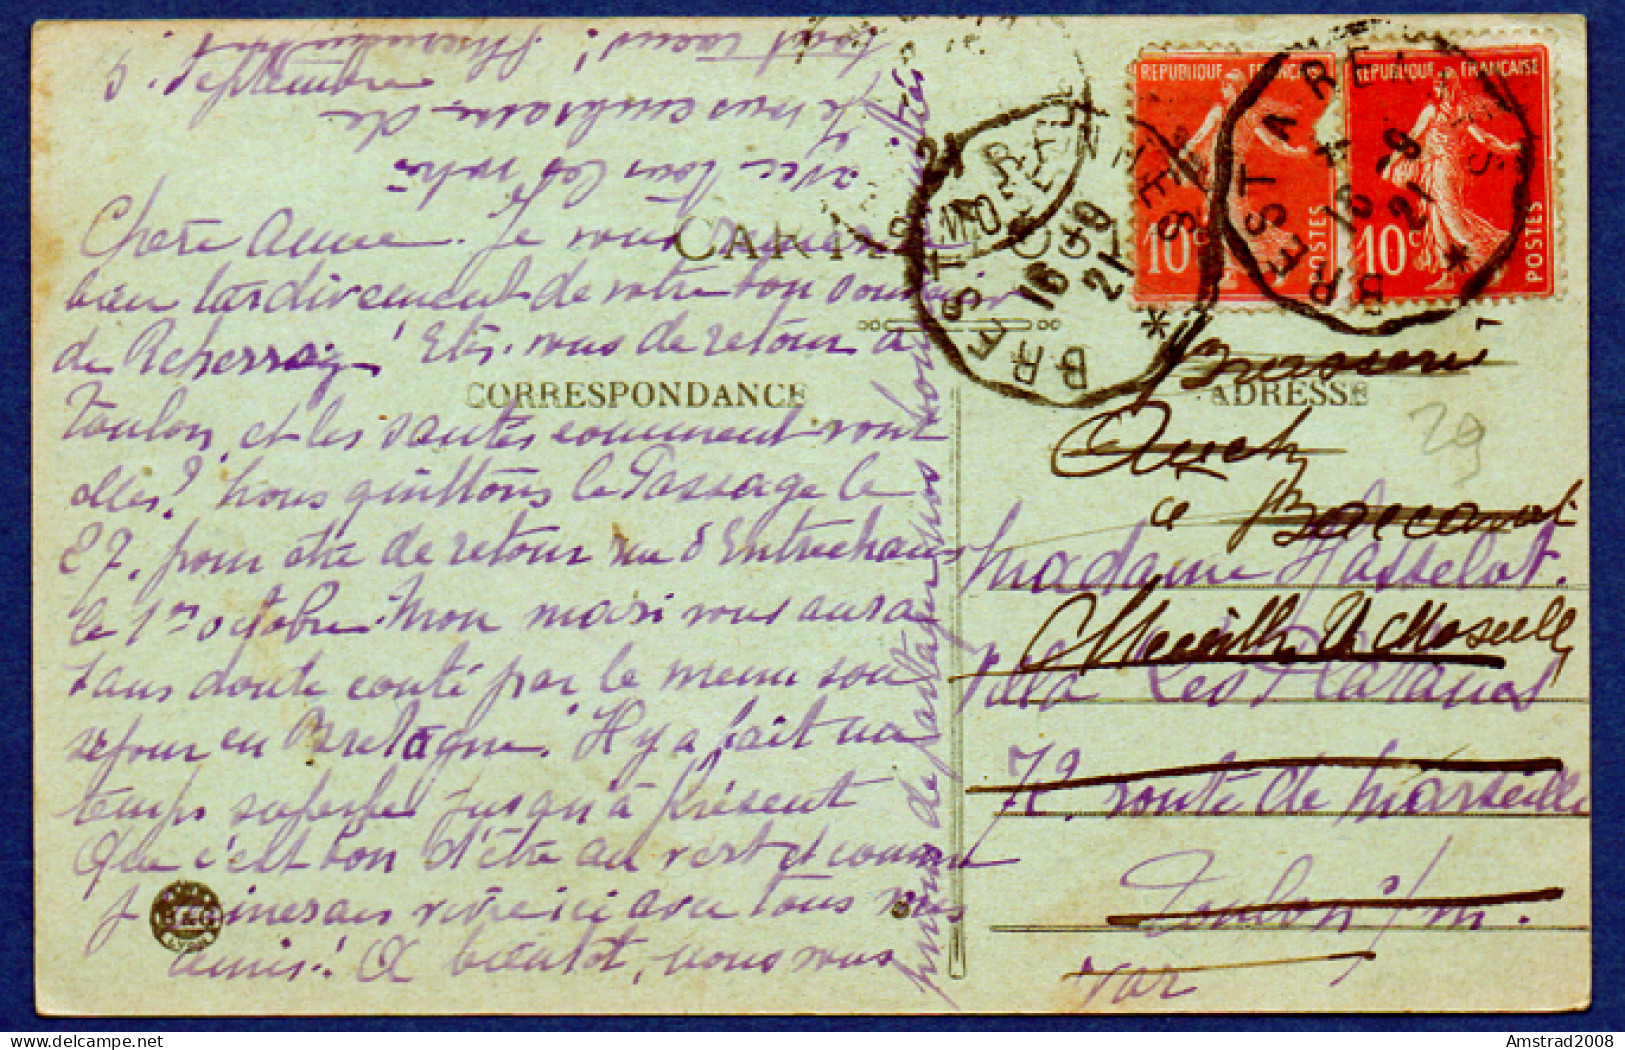 CARTE POSTALE
CORRESPONDANCE
ADRESSE
REPUBLIQUE FRANÇAISE
10c POSTES
REPUBLIQUE FRANÇAISE
10c POSTES
BREST A RENNES
16 -9
21
BREST A RENNES
16 -9
21
Chère amie. Je vous remercie
bien tardivement de votre bon souvenir
de. Etes-vous de retour à
Toulon, et les santés comment vont
elles? Nous quittons le Passage le
27, pour être de retour rue d'Entrechaus
le 1er octobre. Mon mari vous aura
sans doute conté par le menu son
séjour en Bretagne. Il y a fait un
temps superbe jusqu'à présent
Que c'est bon d'être au vert et comme
j'aimerais vivre ici avec tous mes
amis! A bientôt, nous nous
avec tous les vôtres
Je vous embrasse de
tout coeur!
5 Septembre
Brasserie
Auch
à Baccarat
Madame Hasselot.
Meurthe & Moselle
Villa Les Platanes
72. route de Marseille
Toulon s/m.
Var
29
B&G
LYON
Amstrad2008